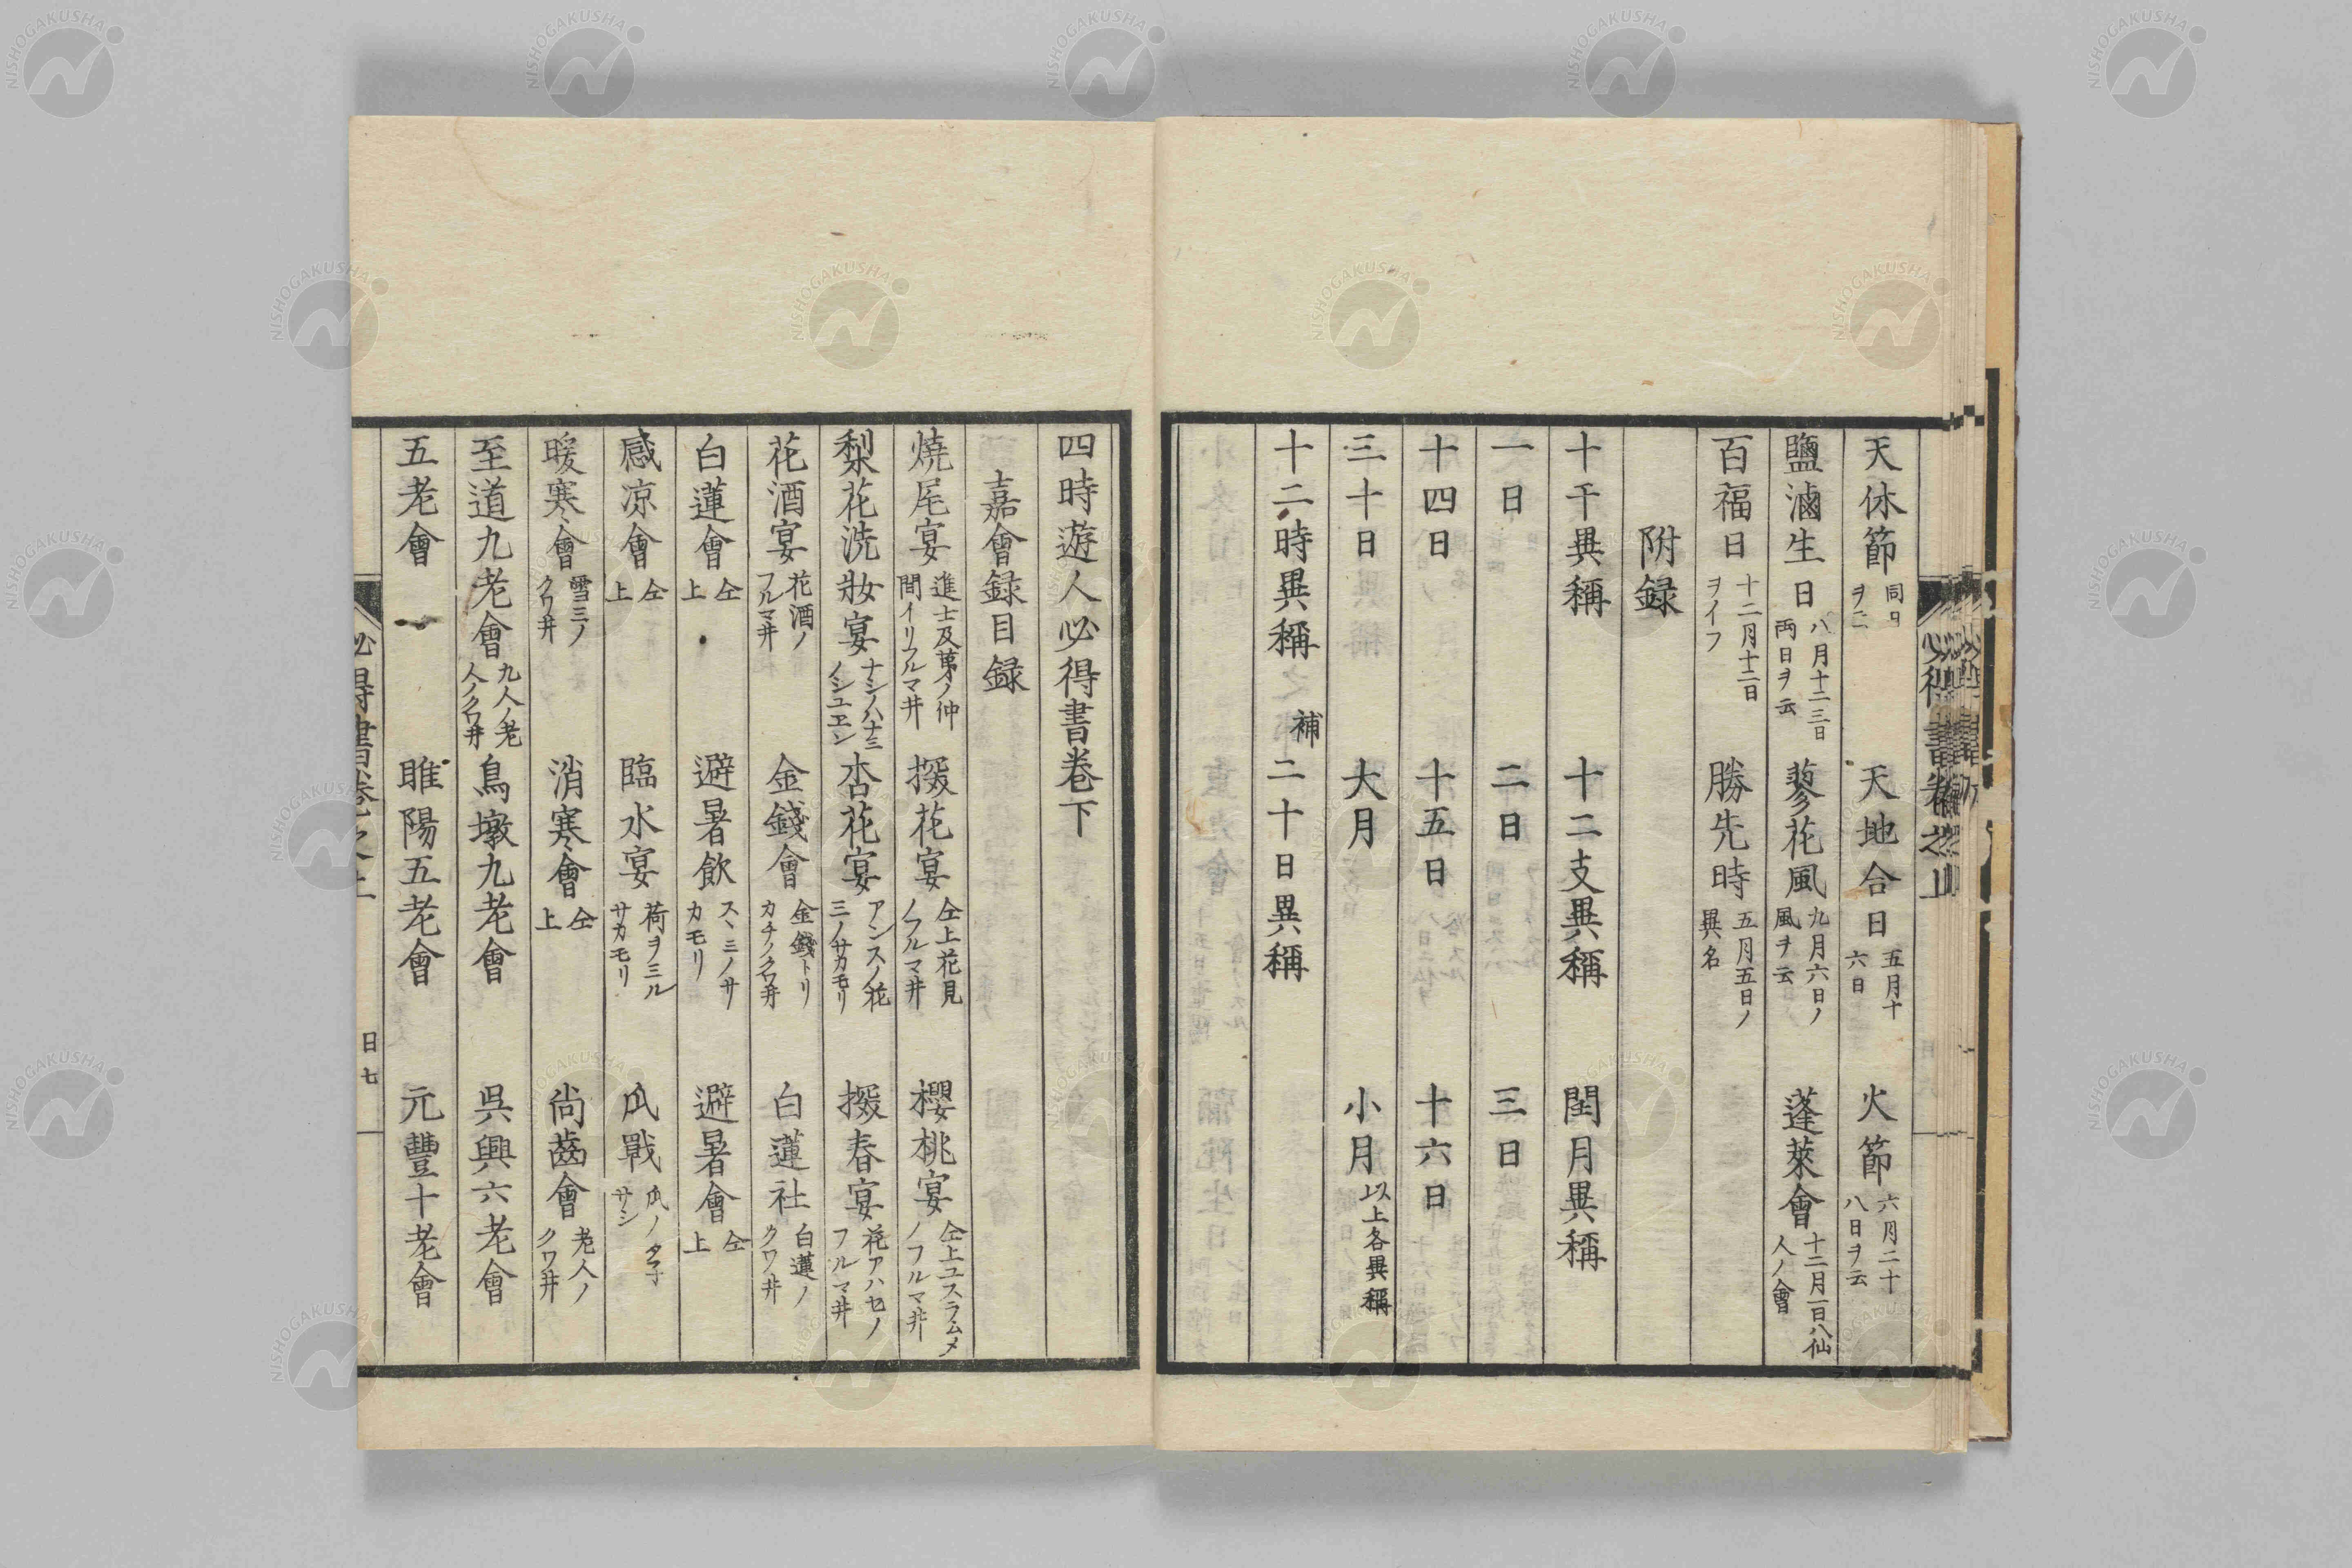 天休節 同日ヲ云 天地合日 五月十六日 火節 六月二十八日ヲ云
鹽滷生日 八月十二三日両日ヲ云 蓼花風 九月六日ノ風ヲ云 蓬萊會 十二月一百八仙人ノ會
百福日 十二月十二日ヲイフ 勝先時 五月五日ノ異名
附録
十干異稱 十二支異稱 閏月異稱
一日 二日 三日
十四日 十五日 十六日
三十日 大月 小月 以上各異稱
十二時異稱 補二十日異稱
四時遊人必得書卷下
嘉會録目録
燒尾宴 進士及第ノ仲間イリフルマ井 探花宴 仝上花見ノフルマ井 櫻桃宴 仝上ユスラムメノフルマ井
梨花洗妝宴 ナシノハナミノシユエン 杏花宴 アンスノ花ミノサカモリ 探春宴 花アハセノフルマ井
花酒宴 花酒ノフルマ井 金錢會 金錢トリカチノクワ井 白蓮社 白蓮ノクワ井
白蓮會 仝上 避暑飲 スヽミノサカモリ 避暑會 仝上
感凉會 仝上 臨水宴 荷ヲミルサカモリ 瓜戰 瓜ノタ子サシ
暖寒會 雪ミノクワ井 消寒會 仝上 尚齒會 老人ノクワ井
至道九老會 九人ノ老人ノクワ井 烏墩九老會 吳興六老會
五老會 睢陽五老會 元豐十老會
必得書卷之上 目七